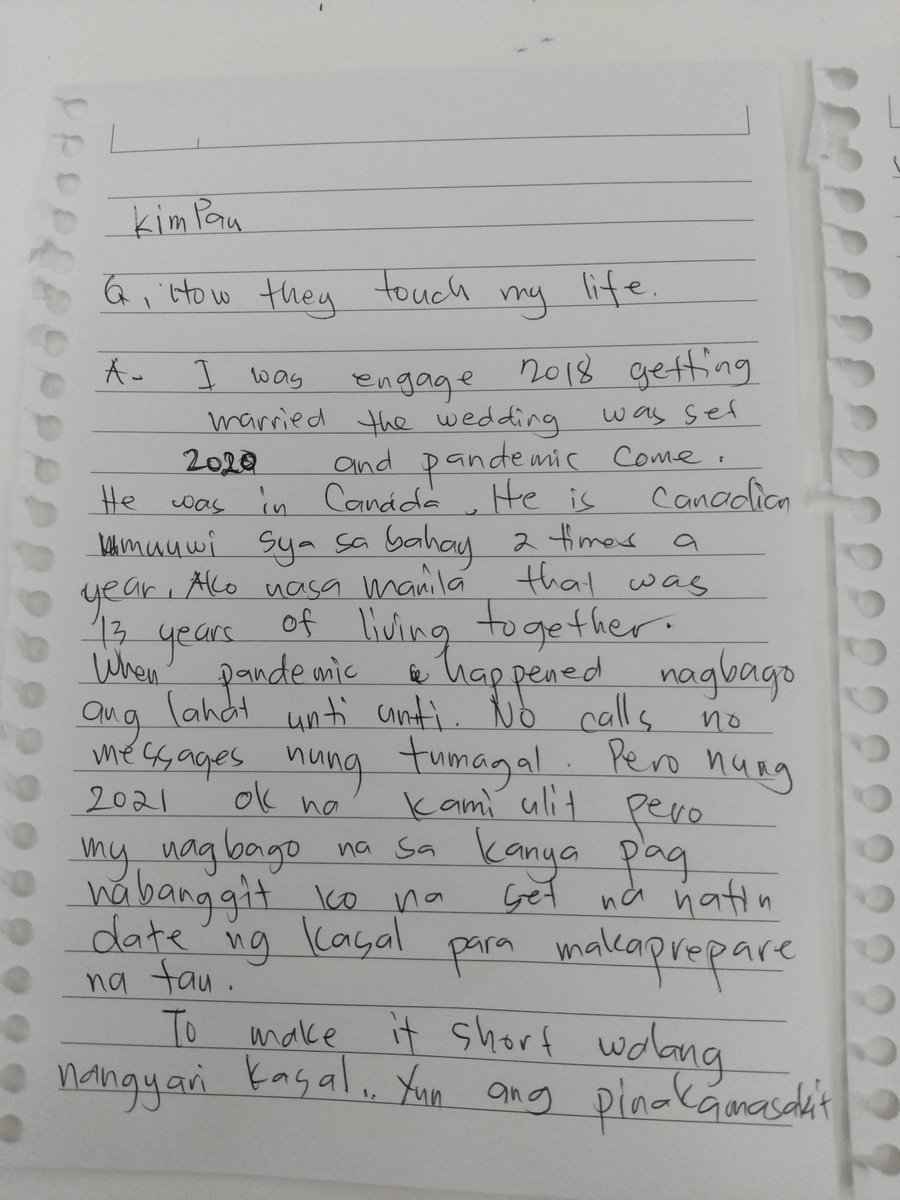 KimPau
Q. How they touch my life.
A- I was engage 2018 getting
married the wedding was set
2020 and pandemic come.
He was in Canada. He is Canadian
umuuwi sya sa bahay 2 times a
year. Ako nasa manila that was
13 years of living together.
When pandemic happened nagbago
ang lahat unti unti. No calls no
messages nung tumagal. Pero nung
2021 ok na kami ulit pero
my nagbago na sa kanya pag
nabanggit ko na set na natin
date ng kasal para makaprepare
na tau.
To make it short walang
nangyari kasal.. Yun ang pinakamasakit